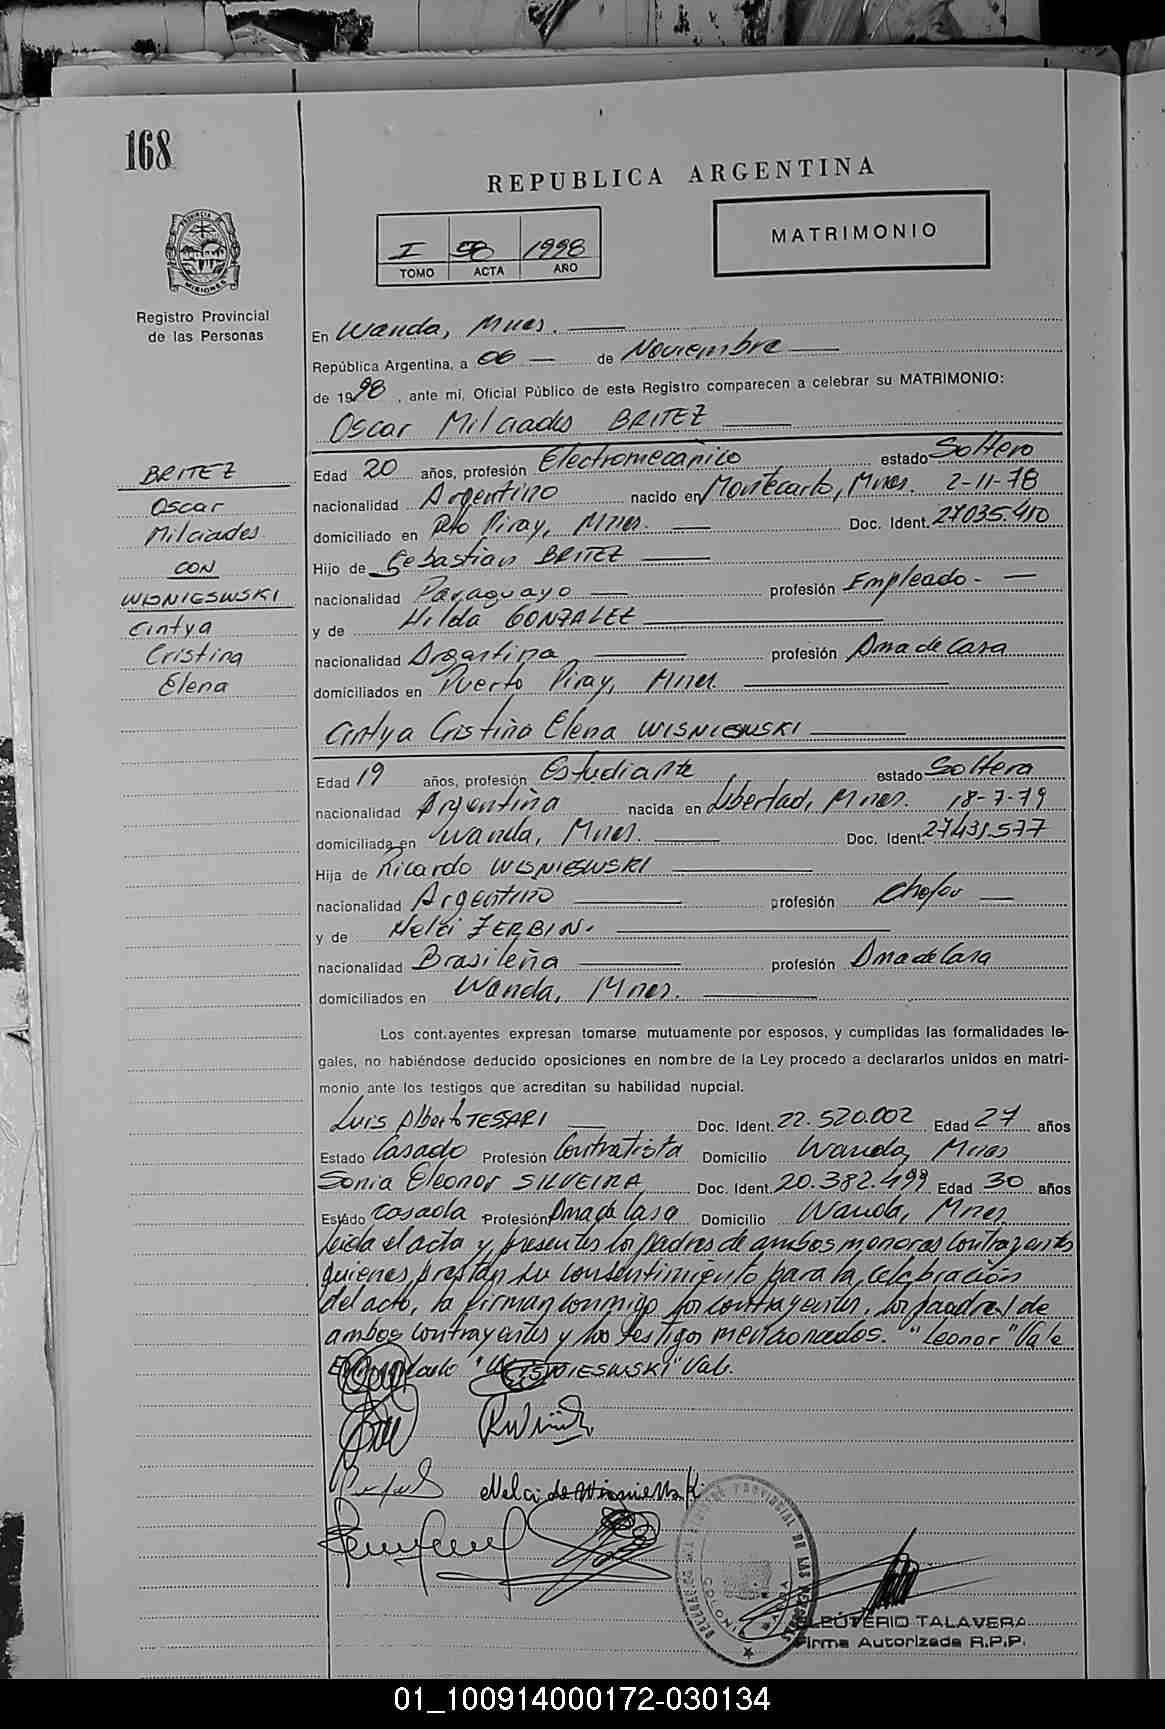 168
REPUBLICA ARGENTINA
I 58 1998
TOMO ACTA AÑO
MATRIMONIO
Registro Provincial
de las Personas
En Wanda, Mnes.
República Argentina, a 06 de Noviembre
de 1998, ante mi, Oficial Público de este Registro comparecen a celebrar su MATRIMONIO:
Oscar Milciades BRITEZ
BRITEZ
Oscar
Milciades
CON
WISNIESWSKI
Cintya
Cristina
Elena
Edad 20 años, profesión Electromecánico estado Soltero
nacionalidad Argentino nacido en Montecarlo, Mnes. 2-11-78
domiciliado en Pto Piray, Mnes. Doc. Ident. 27035.410
Hijo de Sebastian BRITEZ
nacionalidad Paraguayo profesión Empleado.
y de Hilda GONZALEZ
nacionalidad Argentina profesión Ama de Casa
domiciliados en Puerto Piray, Mnes
Cintya Cristina Elena WISNIEWSKI
Edad 19 años, profesión Estudiante estado Soltera
nacionalidad Argentina nacida en Libertad, Mnes. 18-7-79
domiciliada en Wanda, Mnes. Doc. Ident. 27431.577
Hija de Ricardo WISNIEWSKI
nacionalidad Argentino profesión Chofer
y de Nelci ZERBIN.
nacionalidad Brasileña profesión Ama de Casa
domiciliados en Wanda, Mnes.
Los contrayentes expresan tomarse mutuamente por esposos, y cumplidas las formalidades le-
gales, no habiéndose deducido oposiciones en nombre de la Ley procedo a declararlos unidos en matri-
monio ante los testigos que acreditan su habilidad nupcial.
Luis Alberto TESSARI Doc. Ident. 22.520.002 Edad 27 años
Estado Casado Profesión Contratista Domicilio Wanda, Mnes
Sonia Eleonor SILVEIRA Doc. Ident. 20.382.499 Edad 30 años
Estado Casada Profesión Ama de Casa Domicilio Wanda, Mnes
leida el acta y presentes los padres de ambos menores contrayentes
quienes prestan su consentimiento para la celebración
del acto, la firman conmigo los contrayentes, los padres de
ambos contrayentes y los testigos mencionados. "Leonor" Vale
WISNIESWSKI" Vale.
Nelci de Wisniewski
REGISTRO PROVINCIAL DE LAS PERSONAS
WANDA
ELEUTERIO TALAVERA
Firma Autorizada R.P.P.
01_100914000172-030134